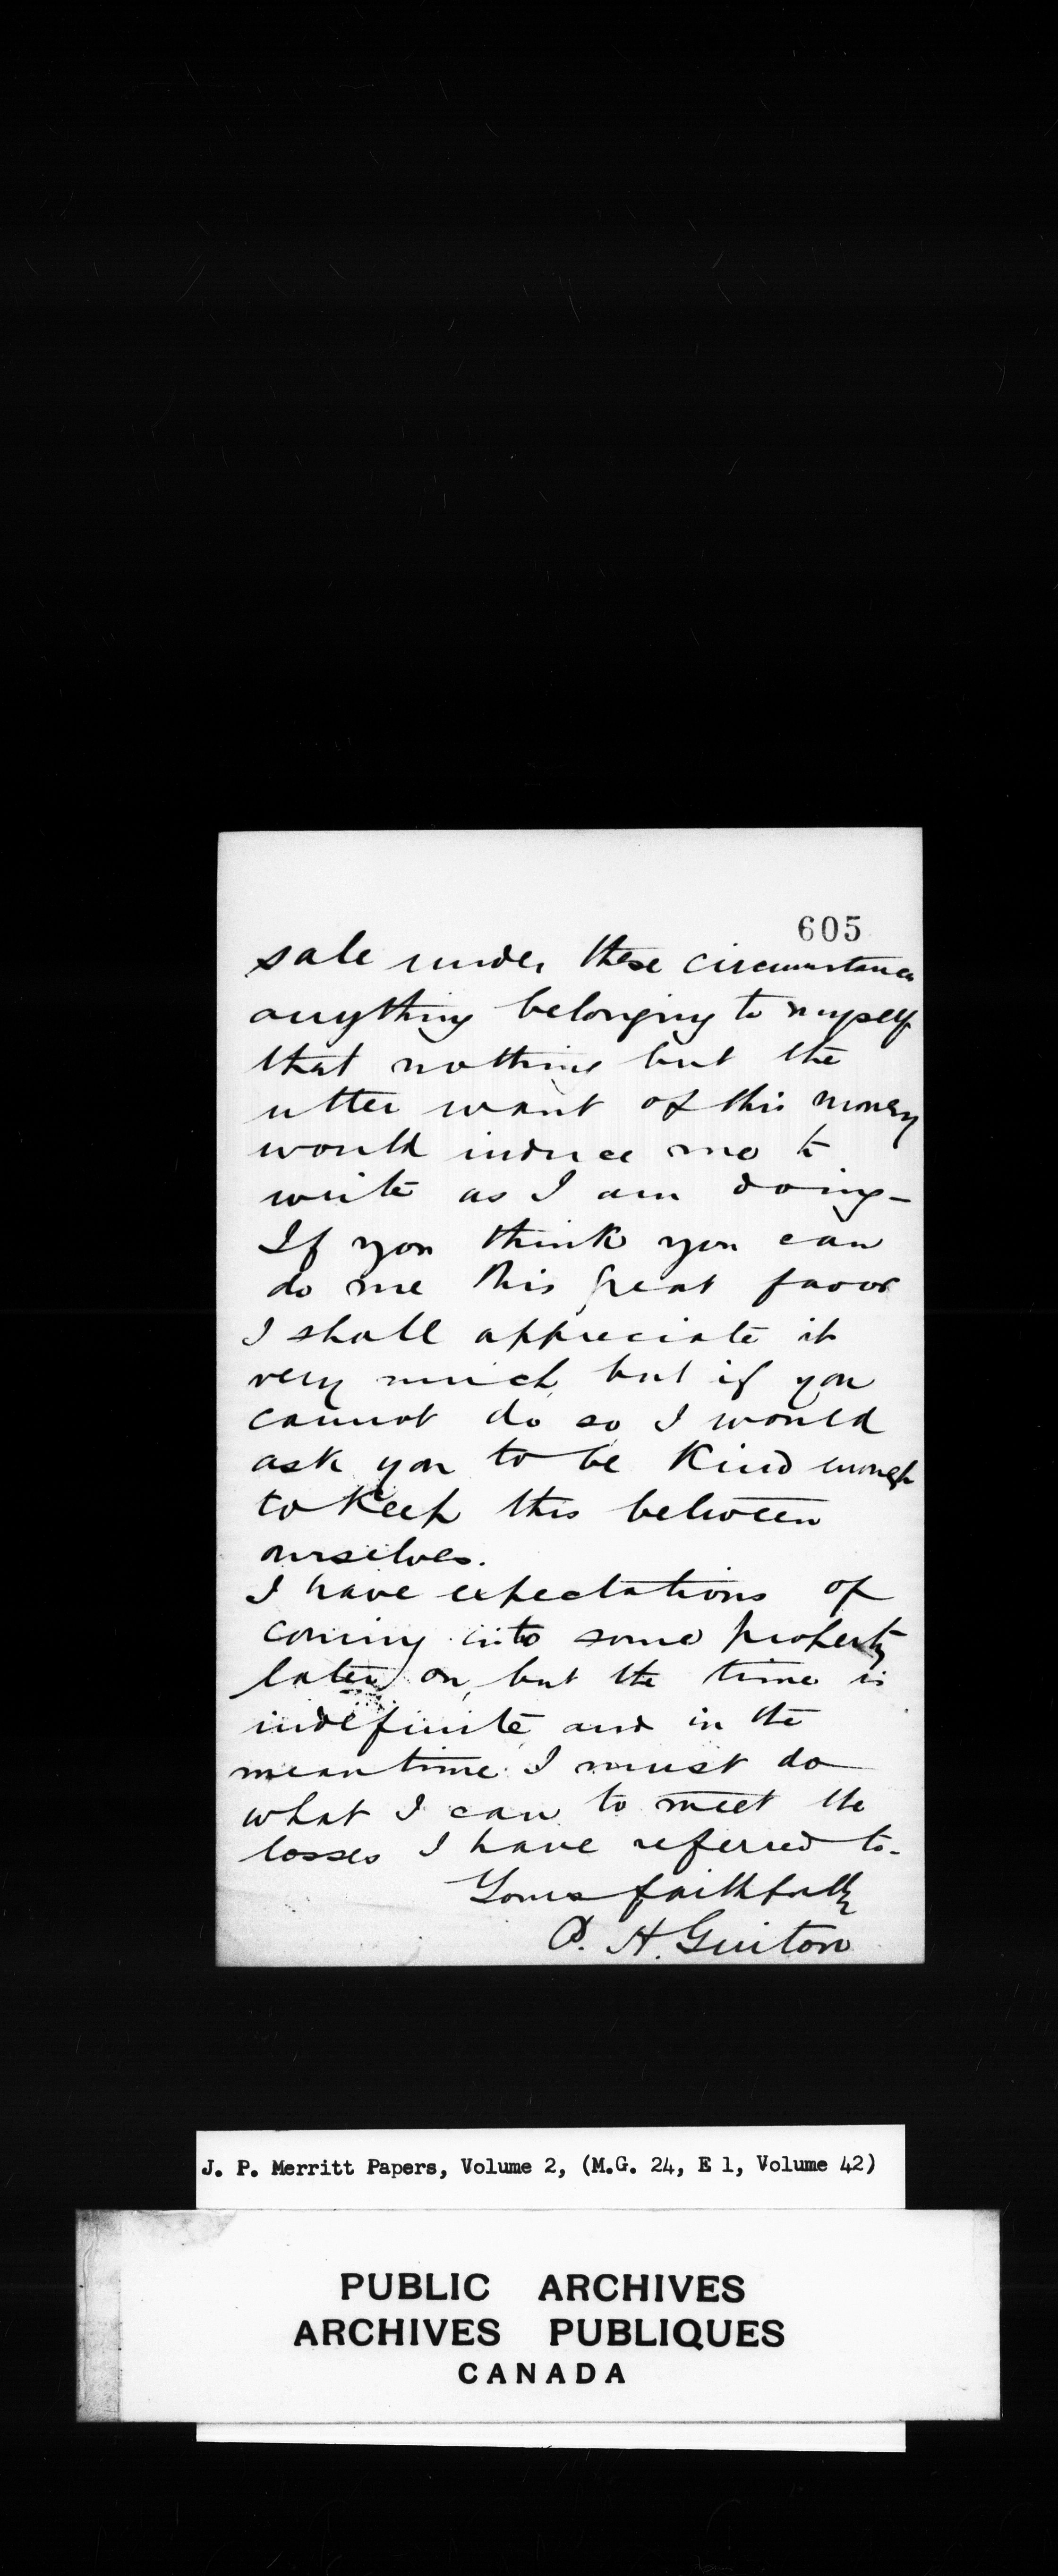 605
sale under these circumstances
anything belonging to myself
that nothing but the
utter want of this money
would induce me to
write as I am doing -
If you think you can
do me this great favor
I shall appreciate it
very much, but if you
cannot do so I would
ask you to be kind enough
to keep this between
ourselves.
I have expectations of
coming into some property
later on, but the time is
indefinite and in the
meantime I must do
what I can to meet the
losses I have referred to -
Yours faithfully
H. Guiton
J. P. Merritt Papers, Volume 2, (M.G. 24, E 1, Volume 42)
PUBLIC ARCHIVES
ARCHIVES PUBLIQUES
CANADA